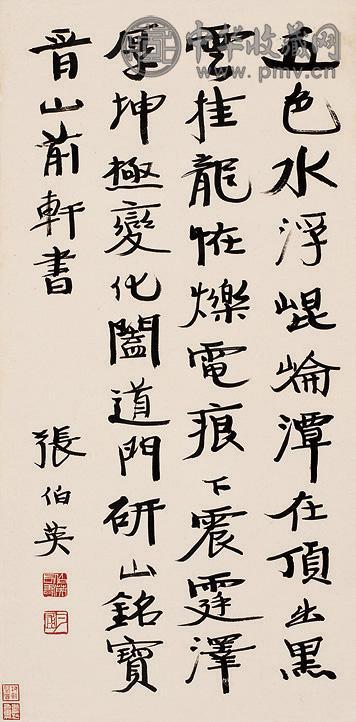 五色水浮崐崘潭在頂出黑
雲挂龍恠爍電痕下震霆澤
厚坤極變化闔道門研山銘寶
晉山前軒書
張伯英
中华收藏网
www.pmv.cn